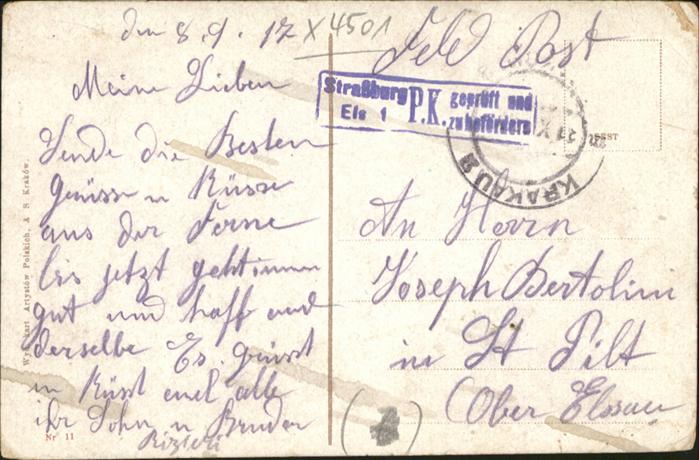 den 8.9.17
X4501
Feld Post
Meine Lieben
Straßburg
Els 1
P.K.
geprüft und
zu befördern
KRAKAU 2
Sende die Besten
Grüsse u Küsse
aus der Ferne
bis jetzt geht immer
gut und hoff auch
derselbe Es grüsst
u Küsst euch alle
ihr Sohn u Bruder
An Herrn
Joseph Bertolini
in St Pilt
Ober Elssass
Artystów Polskich, A. S. Kraków.
Nr 11